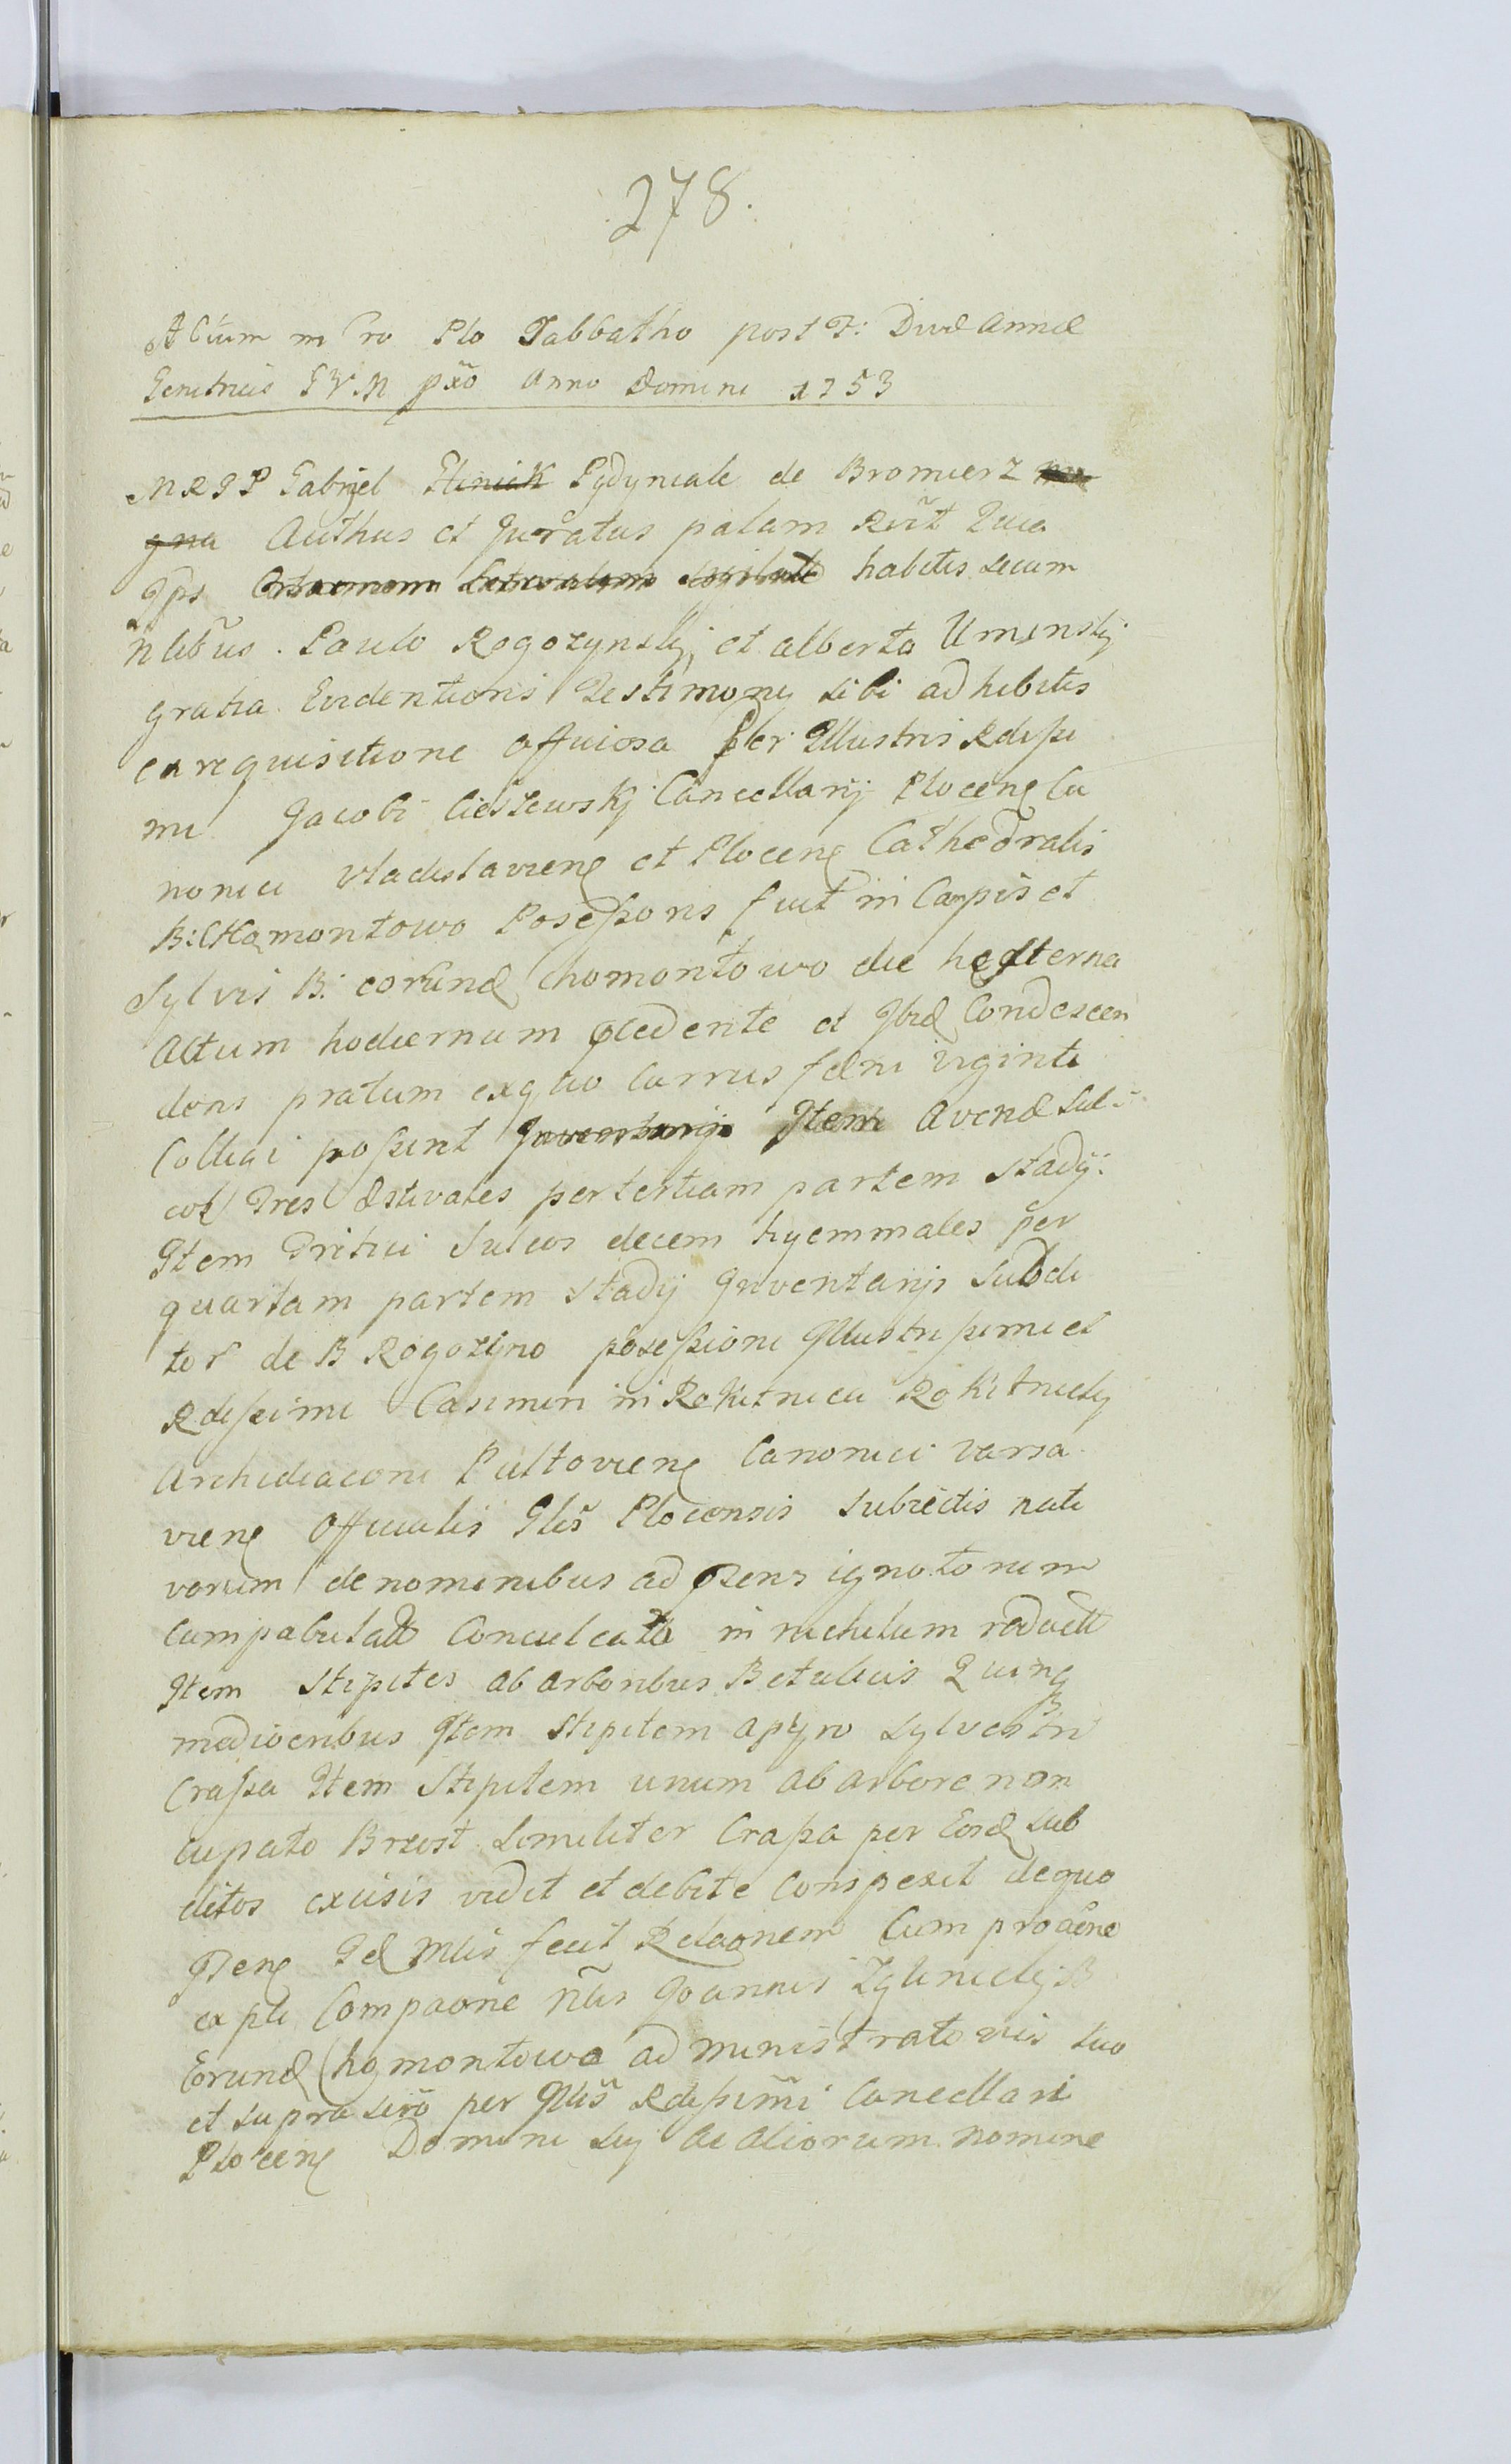 .278.
Actum in Cro Plo Sabbatho post F: Divæ Annæ
Genitricis G V M pxõ Anno Domini 1753
MRGP Gabriel Pydyniak de Bromierz
Authus et Juratus palam Rũt Quia
Ips habitis secum
ñlibũs . Paulo Rogozynsky, et alberto Uminsky
gratia Evidentioris Testimony sibi adhibitis
ex requisitione officiosa Per Illustris Rdissi
mi Jacobi Cieszewsky Cancellarij Plocenę Ca
nonici Vladislavienę et Plocenę Cathedralis
B: Chomontowo Possessoris fuit in Campis et
Sylvis B. eorund Chomontowo die hesterna
Actum hodiernum pcedente et Ibid Condescen
dens pratum ex quo Currus fæni viginti
Colligi possunt Item Avenæ Sul
cos Tres Æstivales per tertiam partem stadij:
Item Tritici Sulcos decem hyemmales per
quartam partem stadij Inventarijs Subdi
tor de B Rogozyno possessioni Illustrissimi et
Rdissimi Casimiri in Rokitnica Rokitnicky
Archidiaconi Pultovienę Canonici Varsa
vienę Officialis Glis Plocensis Subiectis nati
vorum de nominibus ad psens ignotorum
Compabulatt Conculcata in nichilum redactt
Item Stipites ab arboribus Betulicis Quinq
mediocribus Item Stipitem a pyro Sylvestri
Crassa Item Stipitem unum ab arbore non
cupato Brzost Similiter Crassa per Eosd Sub
ditos excisis vidit et debite Conspexit de quo
Id Mlis fecit Relaonem Cum pro
ex pte Compaone ñlis Joannis Zglinicky B
Eorund Chomontowo administratoris suo
et supra per Illis Rdissimi Cancellari
Plocenę Domini sui ac aliorum nomine